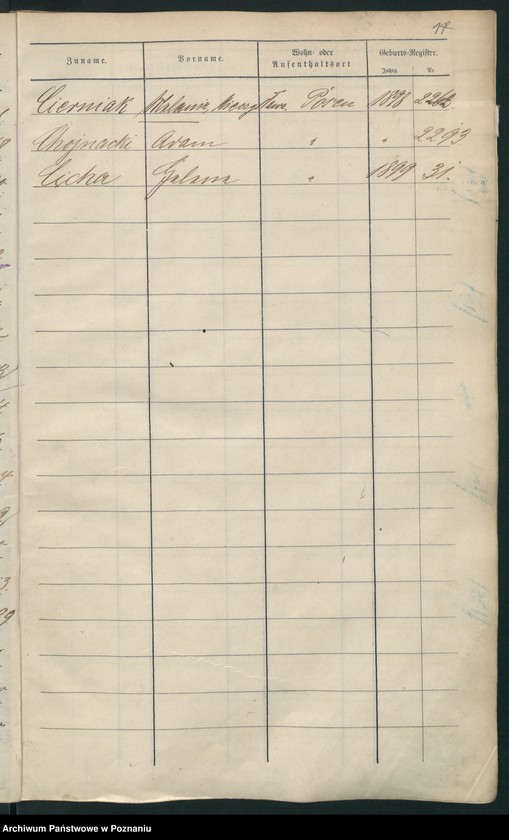 17
Zuname. Vorname. Wohn- oder Aufenthaltsort Geburts-Register.
Jahrg. Nr.
Cierniak Posen 1898 2262
Chojnacki Adam " " 2293
Cicha " 1899 31.
Archiwum Państwowe w Poznaniu